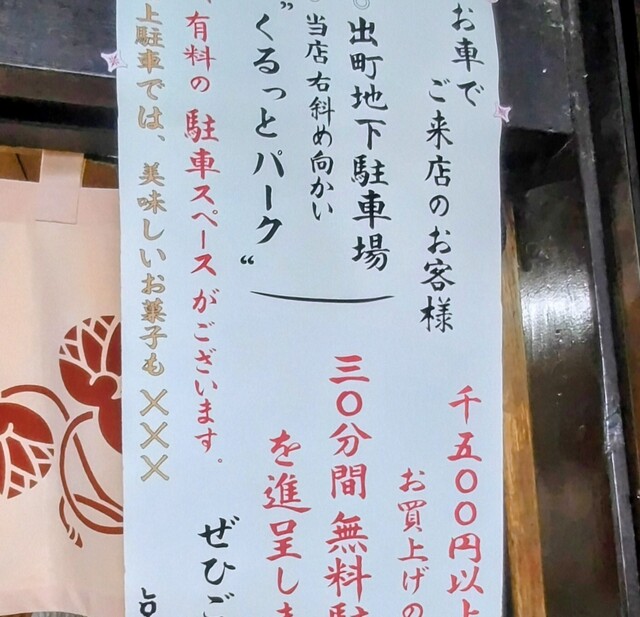 お車で
ご来店のお客様
千五〇〇円以上
お買上げの
◎出町地下駐車場
当店右斜め向かい
三〇分間無料駐
〝くるっとパーク〟
を進呈しま
有料の駐車スペースがございます。
ぜひご
上駐車では、美味しいお菓子も×××